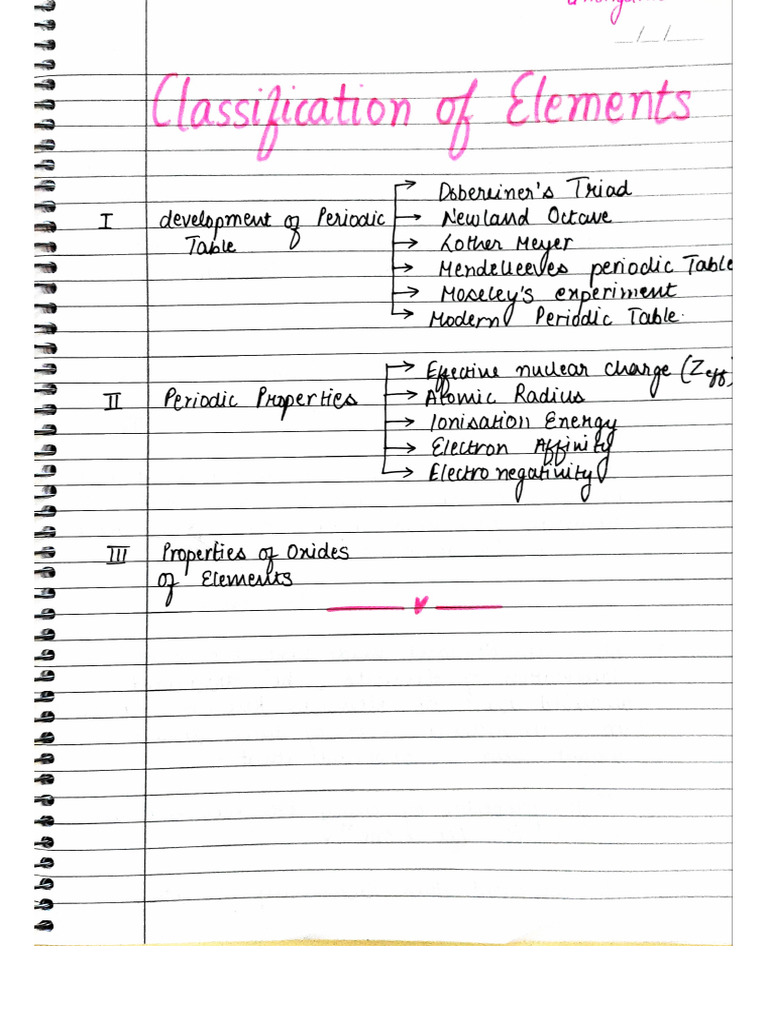 __/__/____
Classification of Elements
I development of Periodic Table
→ Dobereiner's Triad
→ Newland Octave
→ Lother Meyer
→ Mendelleeves periodic Table
→ Moseley's experiment
→ Modern Periodic Table.
II Periodic Properties
→ Effective nuclear charge (Zeff)
→ Atomic Radius
→ Ionisation Energy
→ Electron Affinity
→ Electronegativity
III Properties of Oxides
of Elements